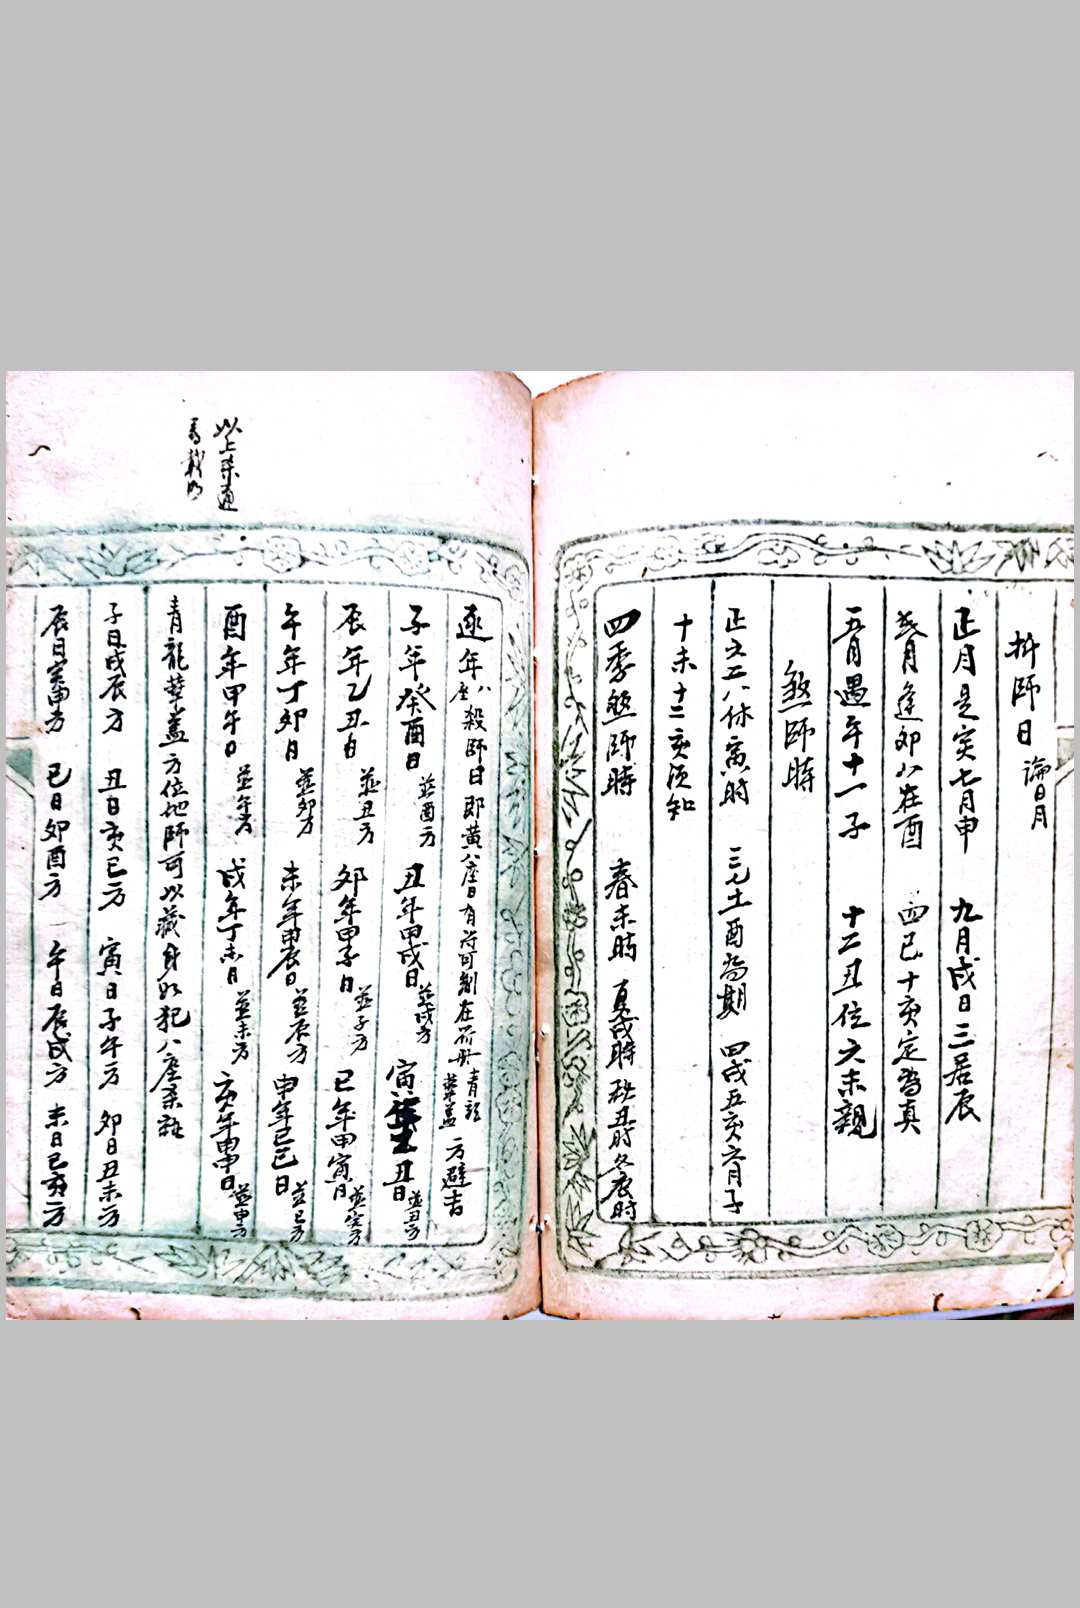 斜師日 論日月
正月是寅七月申 九月戌日三居辰
弍月逢卯八在酉 四巳十亥定為真
五月遇午十一子 十二丑位六未親
煞師時
正二五八休寅時 三七土酉為期 四戌五亥六月子
十未十二亥須知
四季煞師時 春未時 夏戌時 秋丑時 冬辰時
逐年八座殺師日即黃八座日有符可制在符册青龍華盖二方避吉
子年癸酉日並酉方 丑年甲戌日並戌方 寅年 丑日並丑方
辰年乙丑日並丑方 卯年甲子日並子方 巳年甲寅日並寅方
午年丁卯日並卯方 未年甲辰日並辰方 申年己巳日並巳方
酉年甲午日並午方 戌年丁未日並未方 亥年甲申日並申方
青龍華盖方位地師可以藏身必犯八座条誌
以上朱通
子日戌辰方 丑日亥巳方 寅日子午方 卯日丑未方
辰日寅申方 巳日卯酉方 午日辰戌方 未日巳亥方